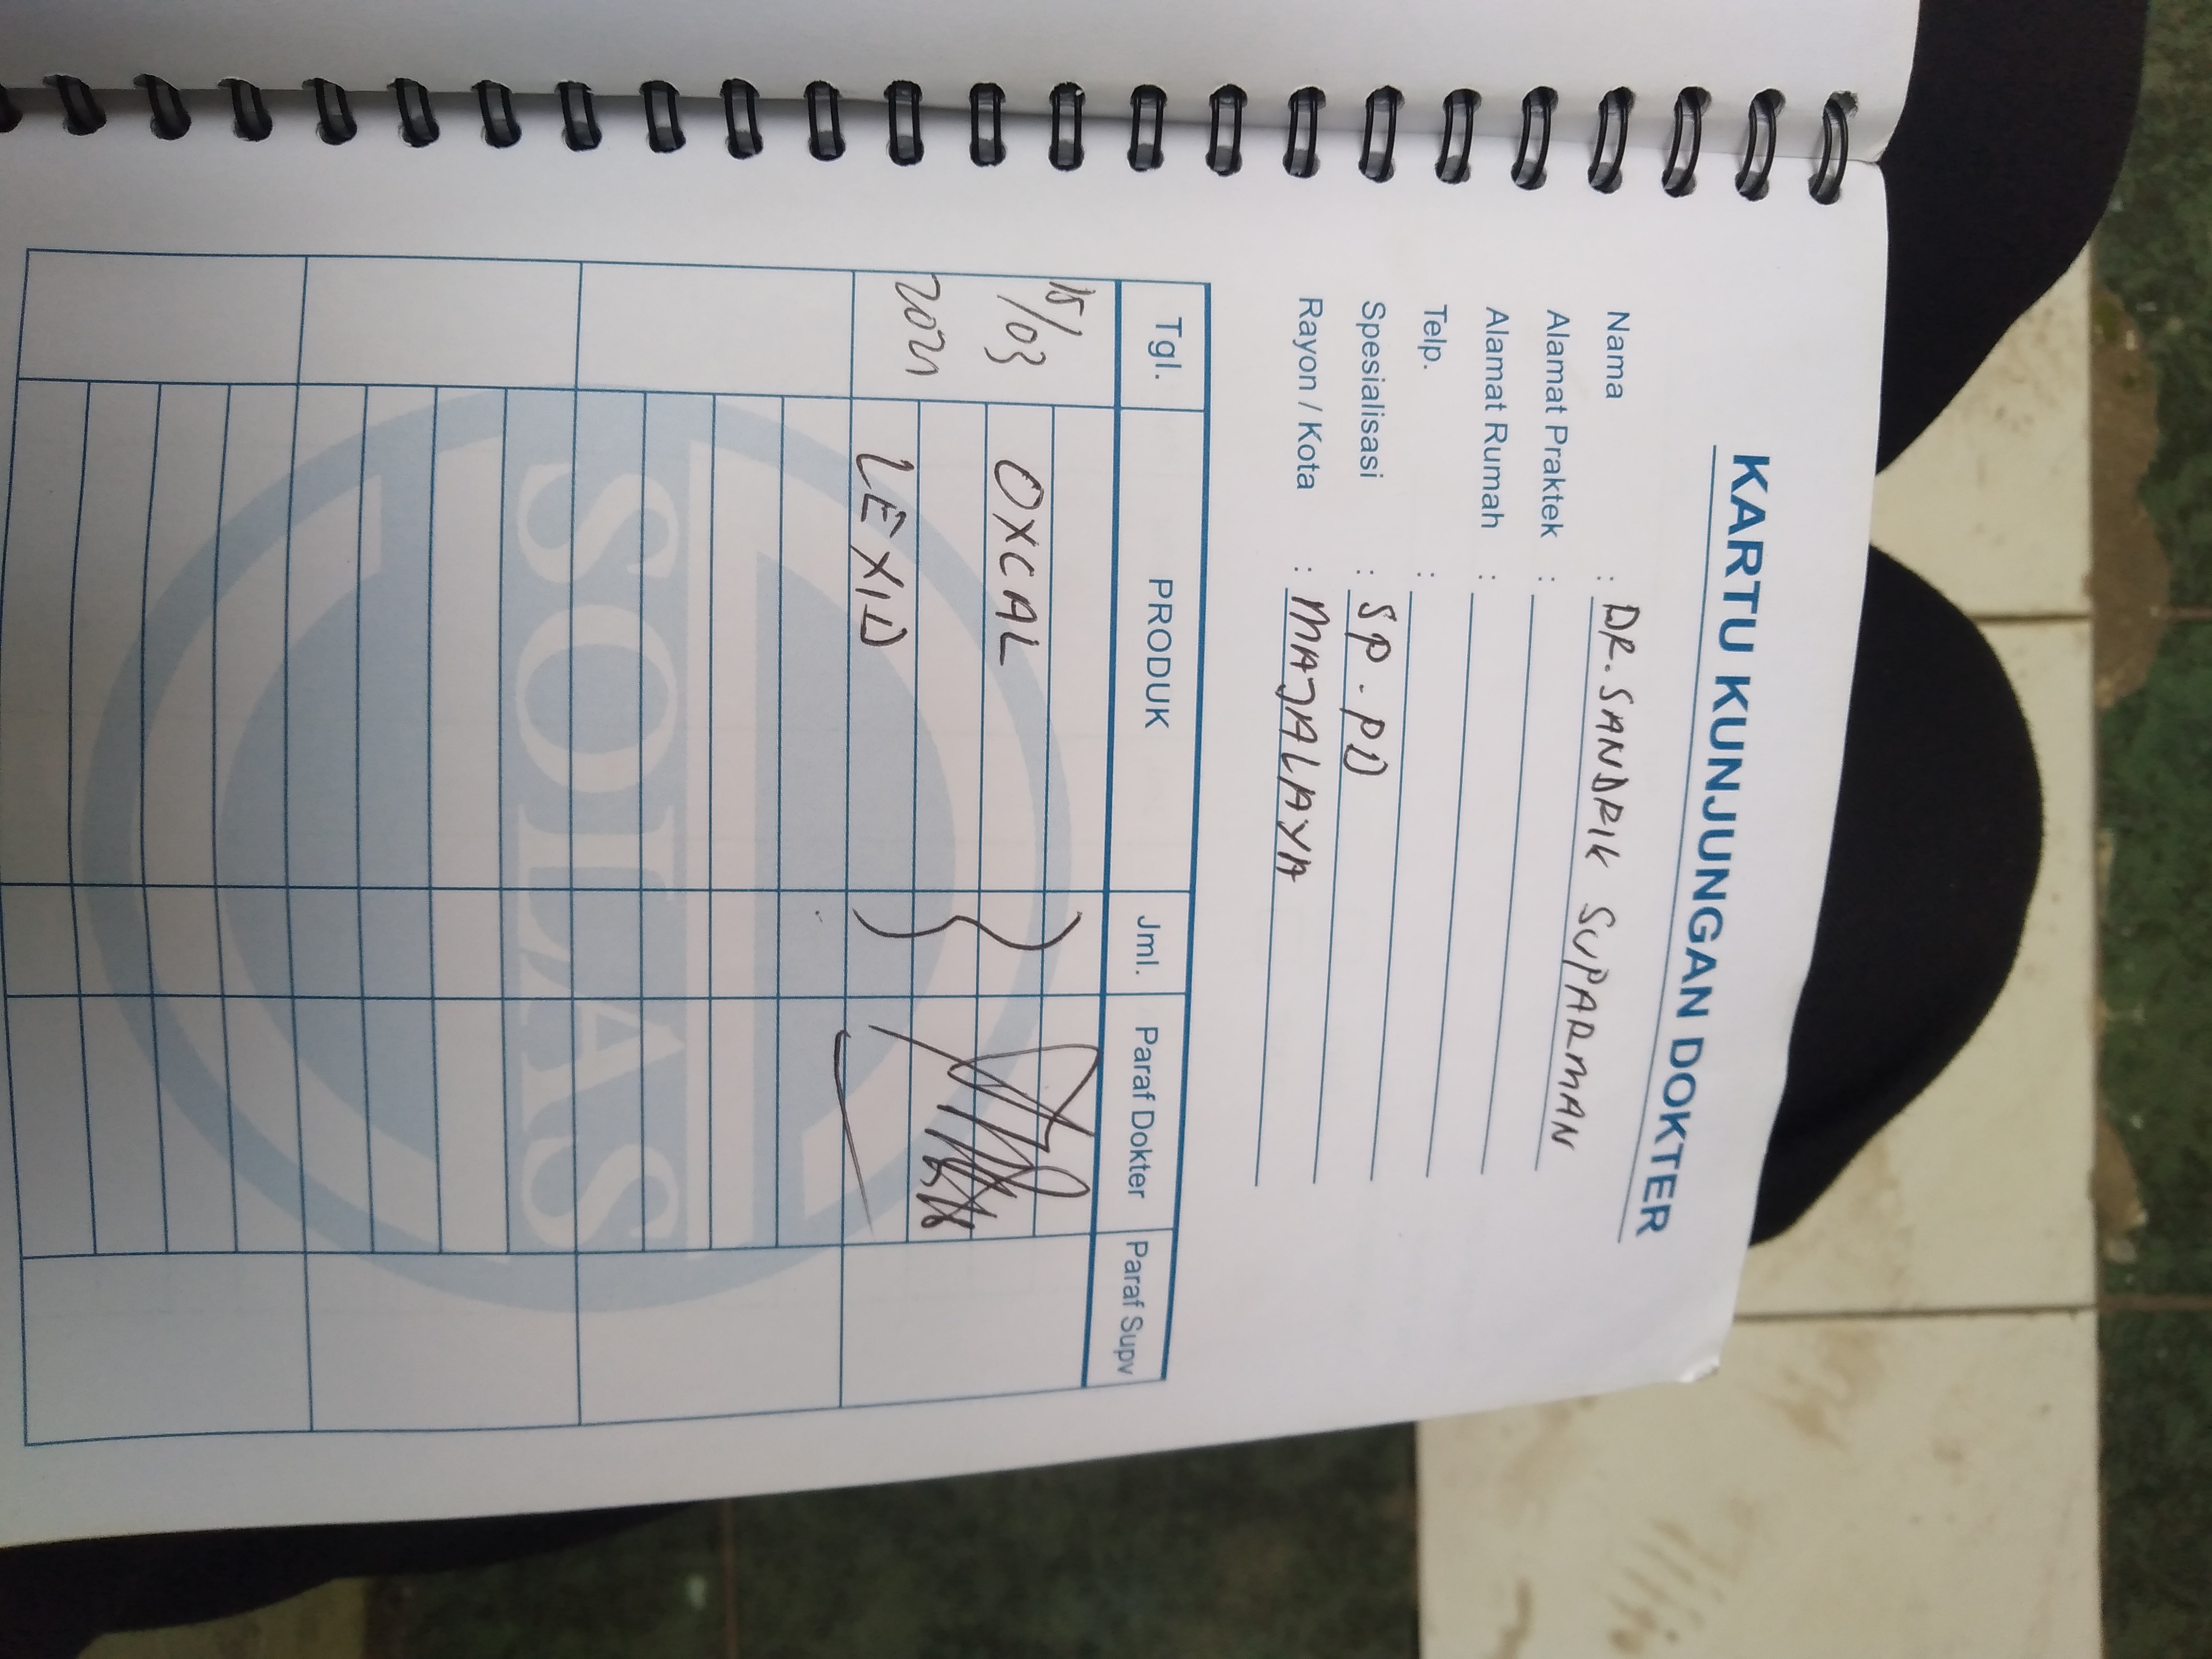 KARTU KUNJUNGAN DOKTER
Nama : DR. SANDRIK SUPARMAN
Alamat Praktek :
Alamat Rumah :
Telp. :
Spesialisasi : SP. PD
Rayon / Kota : MAJALAYA
Tgl. PRODUK Jml. Paraf Dokter Paraf Supv
15/03
OXCAL
2021
LEXID
SOLAS